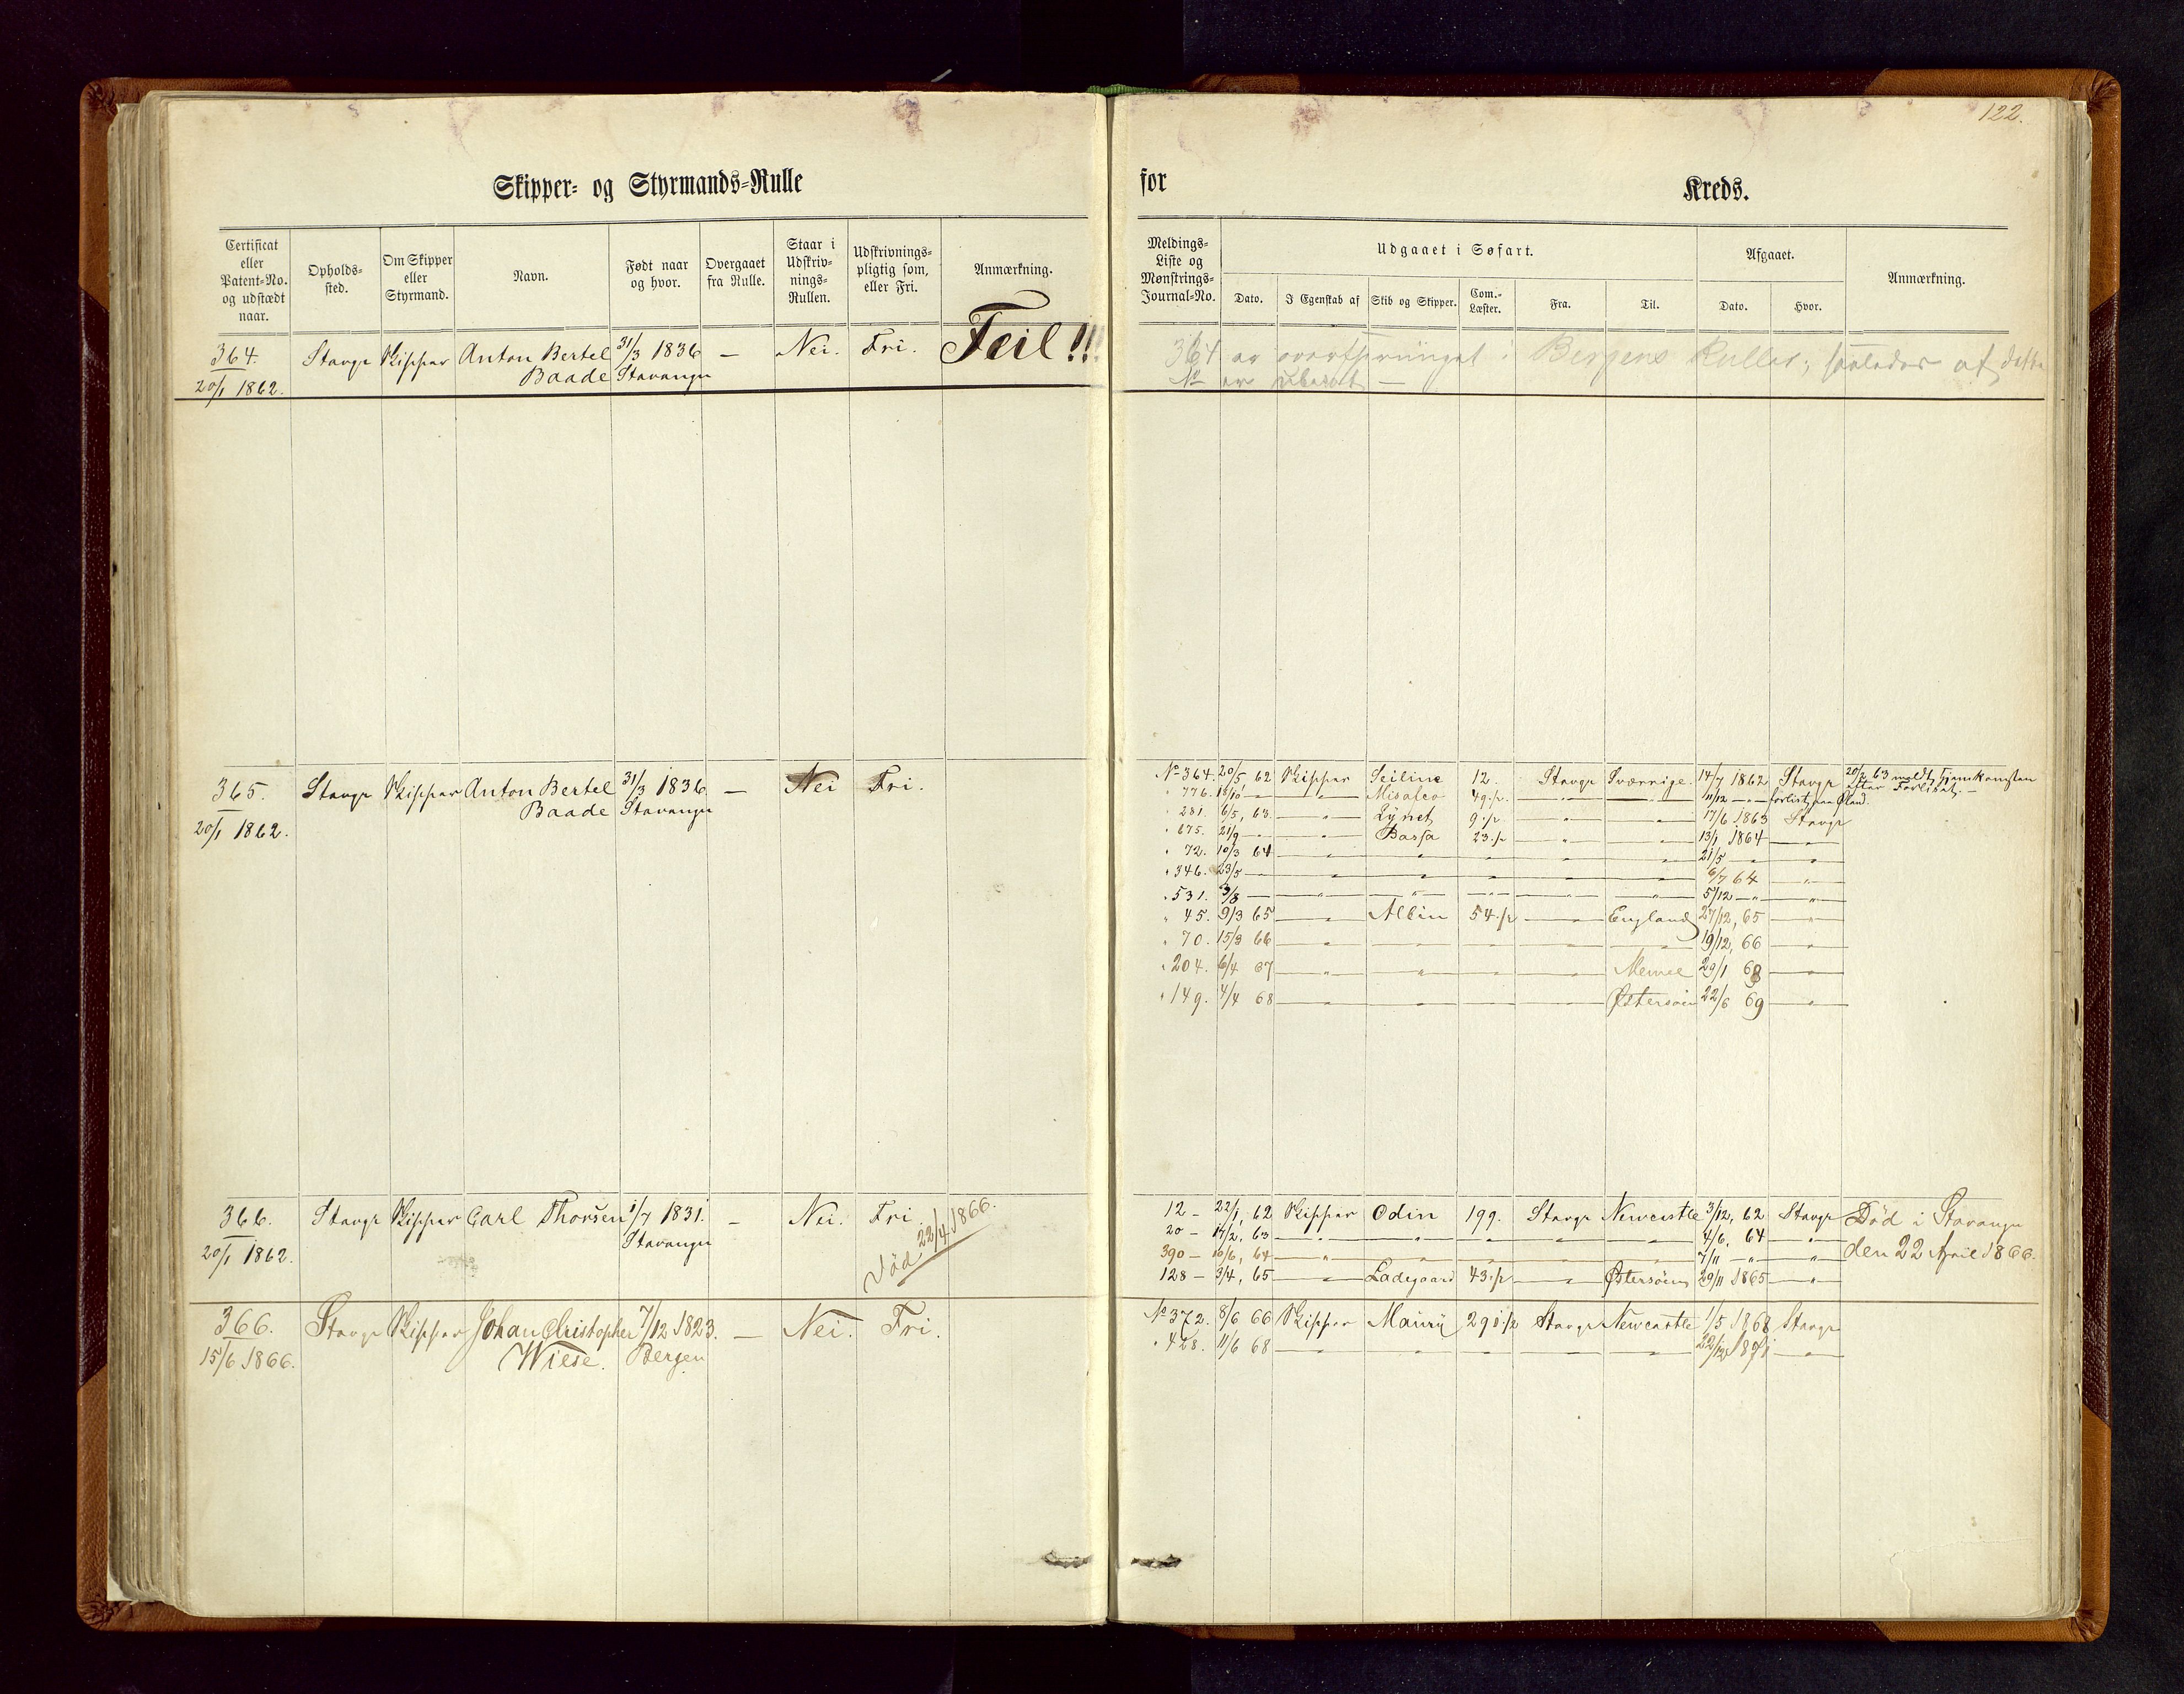 122.
Skipper- og Styrmands-Rulle
for Kreds.
Certificat eller Patent-No. og udstædt naar.
Opholds-sted.
Om Skipper eller Styrmand.
Navn.
Født naar og hvor.
Overgaaet fra Rulle.
Staar i Udskriv-nings-Rullen.
Udskrivnings-pligtig som, eller Fri.
Anmærkning.
Meldings-Liste og Mønstrings-Journal-No.
Udgaaet i Søfart.
Dato. I Egenskab af Skib og Skipper. Com.-Læster. Fra. Til.
Afgaaet.
Dato. Hvor.
Anmærkning.
364. Stavgr Skipper Anton Bertel 31/3 1836 — Nei. Fri. Feil!!!
20/1 1862. Baade Stavanger
364 er oversprunget i Bergens Ruller; saaledes at dette
No er ubesat —
365. Stavgr Skipper Anton Bertel 31/3 1836. — Nei Fri.
20/1 1862. Baade Stavanger
No 364. 20/5 62 Skipper Seiline 12. Stavgr Sverrige 14/7 1862 Stavgr 20/2 63 meldt Hjemkomsten
efter Forliset. —
" 776. 15/10 — — " — 49 1/2 — " — — " — 11/12 — " — forlist paa Øland.
" 231. 6/5, 63. — " — Lynet 9 1/2 — " — — " — 17/6 1863 Stavgr
" 675. 21/9 — — " — Bassa 23 1/2 — " — — " — 13/1 1864 — " —
" 72. 10/3 64 — " — — " — — " — — " — — " — 21/5 — " — — " —
" 346. 23/5 — — " — — " — — " — — " — — " — 6/7 64 — " —
" 531. 3/8 — — " — — " — — " — — " — — " — 5/12 — " — — " —
" 45. 9/3 65 — " — Albin 54 1/2 — " — England 27/12, 65 — " —
" 70. 15/3 66 — " — — " — — " — — " — — " — 19/12, 66 — " —
" 204. 6/4 67 — " — — " — — " — — " — Memel 29/1 68 — " —
" 149. 4/4 68 — " — — " — — " — — " — Østersøen 22/6 69 — " —
366. Stavgr Skipper Carl Thorsen 1/7 1831. — Nei. Fri.
20/1 1862. Stavanger
Død 22/4 1866.
12 — 22/1, 62 Skipper Odin 199. Stavgr Newcastle 3/12, 62 Stavgr Død i Stavanger
20 — 14/2, 63 — " — — " — — " — — " — — " — 4/6, 64 — " —
den 22 April 1866.
390 — 10/6, 64 — " — — " — — " — — " — — " — 7/11 — " — — " —
128 — 3/4, 65 — " — Ladegaard 43 1/2 — " — Østersøen 29/11 1865 — " —
366. Stavgr Skipper Johan Christopher 7/12 1823. — Nei. Fri.
15/6 1866. Wiese. Bergen
No 372. 8/6 66 Skipper Mauri 291 1/2 Stavgr Newcastle 1/5 1868 Stavgr
" 428. 11/6 68 — " — — " — — " — — " — — " — 22/12 1871 — " —